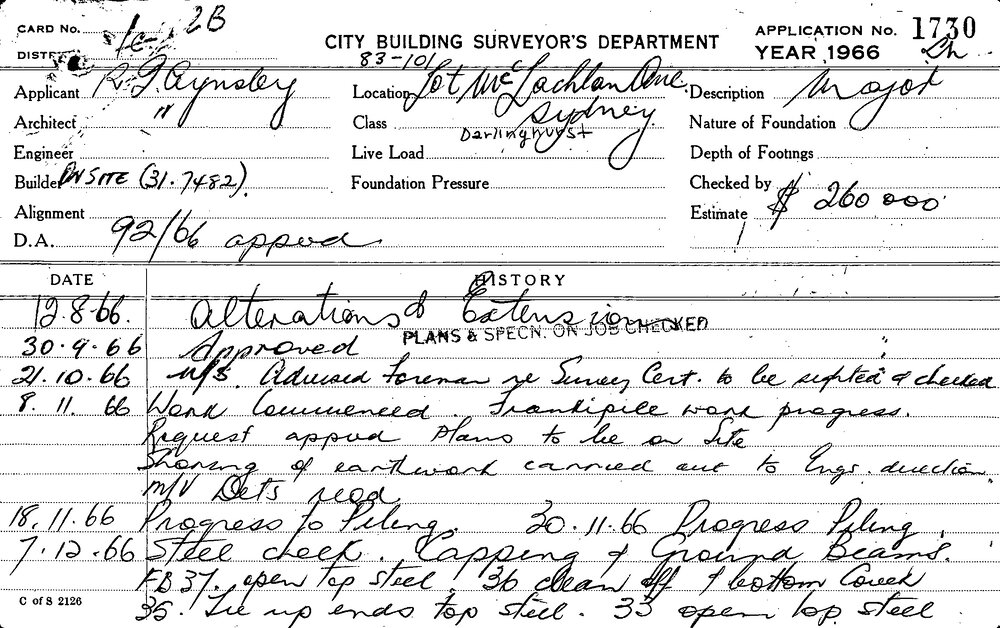 CARD No. 1c- 2B
DISTRICT
CITY BUILDING SURVEYOR'S DEPARTMENT
APPLICATION No. 1730
YEAR 1966
83-101
Applicant R. G. Aynsley
Location Lot McLachlan Ave,
Description Major
Architect "
Class Sydney
Darlinghurst
Nature of Foundation
Engineer
Live Load
Depth of Footings
Builder ON SITE (31.7482).
Foundation Pressure
Checked by
Alignment
Estimate $ 260 000
D.A. 92/66 appvd
DATE HISTORY
12.8.66. Alterations & Extension
PLANS & SPECN. ON JOB CHECKED
30.9.66 Approved
21.10.66 Advised Foreman re Survey Cert. to be sighted & checked
8.11.66 Work Commenced. Frankipile work progress.
Request appvd Plans to be on Site
Shoring of earthwork carried out to Engs. direction
M/V Dets reqd
18.11.66 Progress to Piling. 30.11.66 Progress Piling.
7.12.66 Steel check. Capping & Ground Beams.
FB 37. open top steel. 36 clean off & bottom Cover
35. Tie up ends top steel. 33 open top steel
C of S 2126